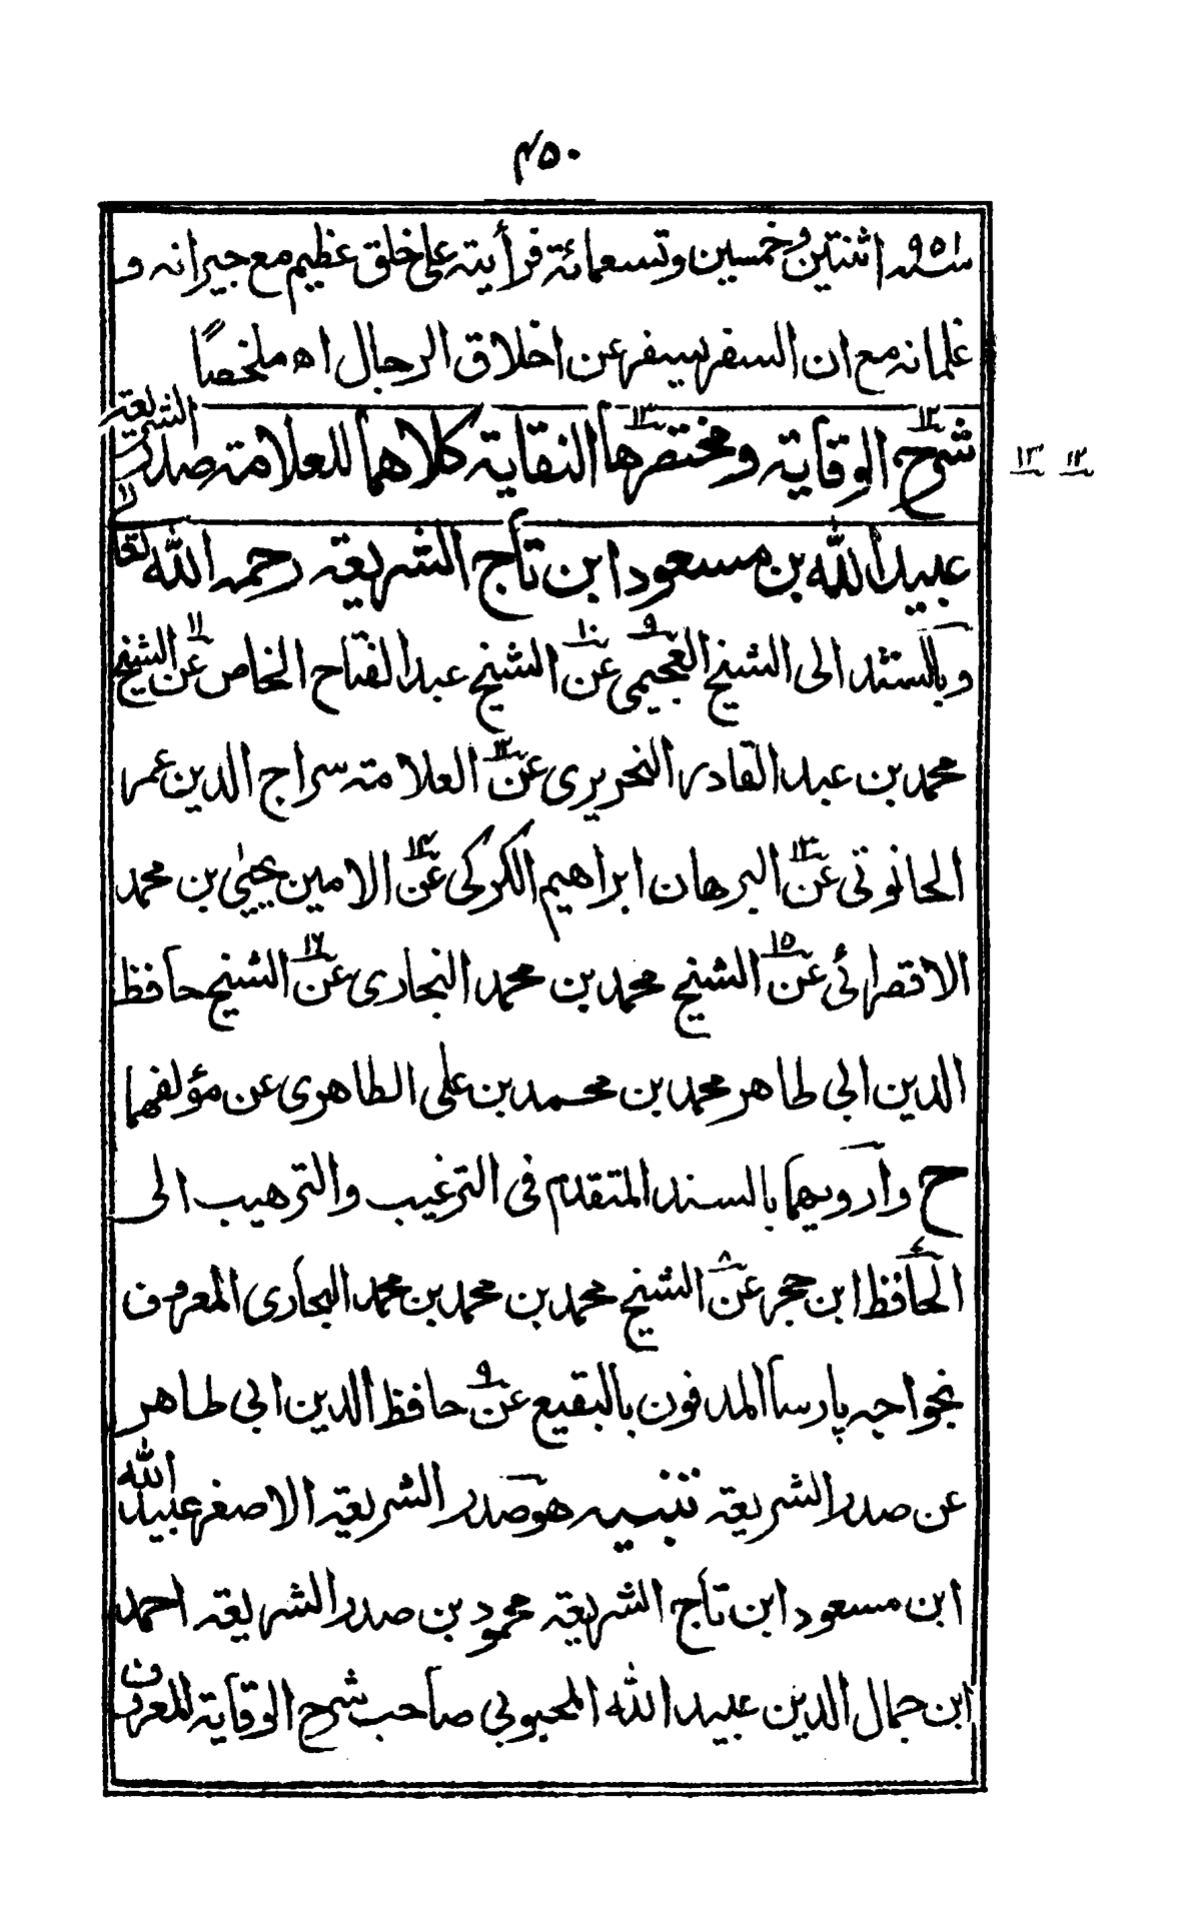 ٤٥٠
سنه ٩٥١ اثنتين وخمسين وتسعمائة فرأيته على خلق عظيم مع جيرانه و
غلمانه مع ان السفر يسفر عن اخلاق الرجال اه ملخصًا
شرح الوقاية ومختصرها النقاية كلاهما للعلامة صدر الشريعة
١٢ ١٣
١٢ ١٣ ١١
عبيد الله بن مسعود ابن تاج الشريعة رحمه الله تعالى
وبالسند الى الشيخ العجيمى ٩ عن ١٠ الشيخ عبد الفتاح الخاص عن ١١ الشيخ
محمد بن عبد القادر النحريرى عن ١٢ العلامة سراج الدين عمر
الحانوتى عن ١٣ البرهان ابراهيم الكركى عن ١٤ الامين يحيى بن محمد
الاقصرائى عن ١٥ الشيخ محمد بن محمد البخارى عن ١٦ الشيخ حافظ
الدين ابى طاهر محمد بن محمد بن على الطاهرى عن مؤلفهما
ح وارويهما بالسند المتقدم فى الترغيب والترهيب الى
الحافظ ابن حجر عن ٨ الشيخ محمد بن محمد بن محمد البخارى المعروف
بخواجه پارسا المدفون بالبقيع عن ٩ حافظ الدين ابى طاهر
عن صدر الشريعة تنبيه هو صدر الشريعة الاصغر عبيد الله
ابن مسعود ابن تاج الشريعة محمود بن صدر الشريعة احمد
ابن جمال الدين عبيد الله المحبوبى صاحب شرح الوقاية المعروف